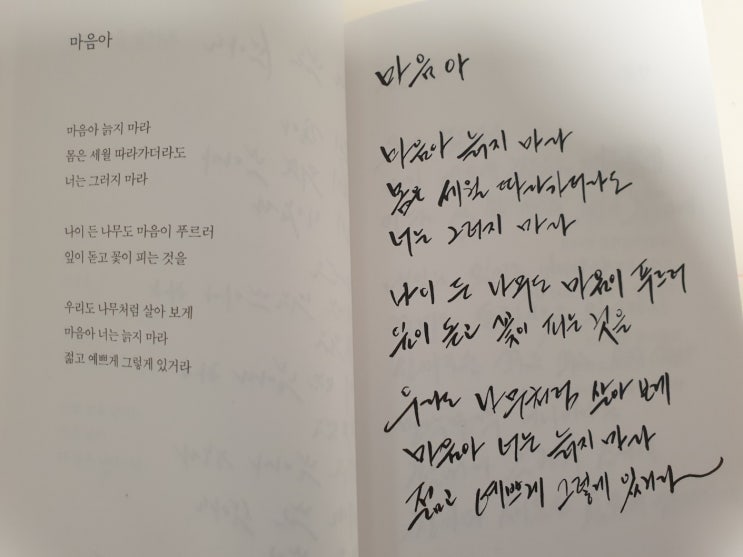 마음아
마음아 늙지 마라
몸은 세월 따라가더라도
너는 그러지 마라
나이 든 나무도 마음이 푸르러
잎이 돋고 꽃이 피는 것을
우리도 나무처럼 살아 보게
마음아 너는 늙지 마라
젊고 예쁘게 그렇게 있거라
마음아
마음아 늙지 마라
몸은 세월 따라가더라도
너는 그러지 마라
나이 든 나무도 마음이 푸르러
잎이 돋고 꽃이 피는 것을
우리도 나무처럼 살아 보게
마음아 너는 늙지 마라
젊고 예쁘게 그렇게 있거라